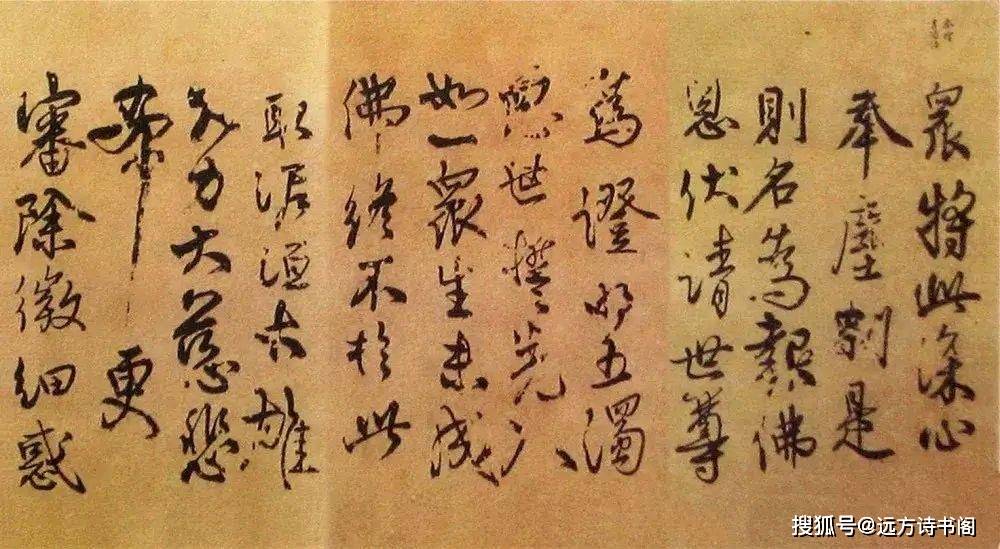 眾將此深心
奉塵剎是
則名為報佛
恩伏請世尊
為證明五濁
惡世誓先入
如一眾生未成
佛終不於此
取泥洹大雄
大力大慈悲
希更
審除微細惑
搜狐号@远方诗书阁